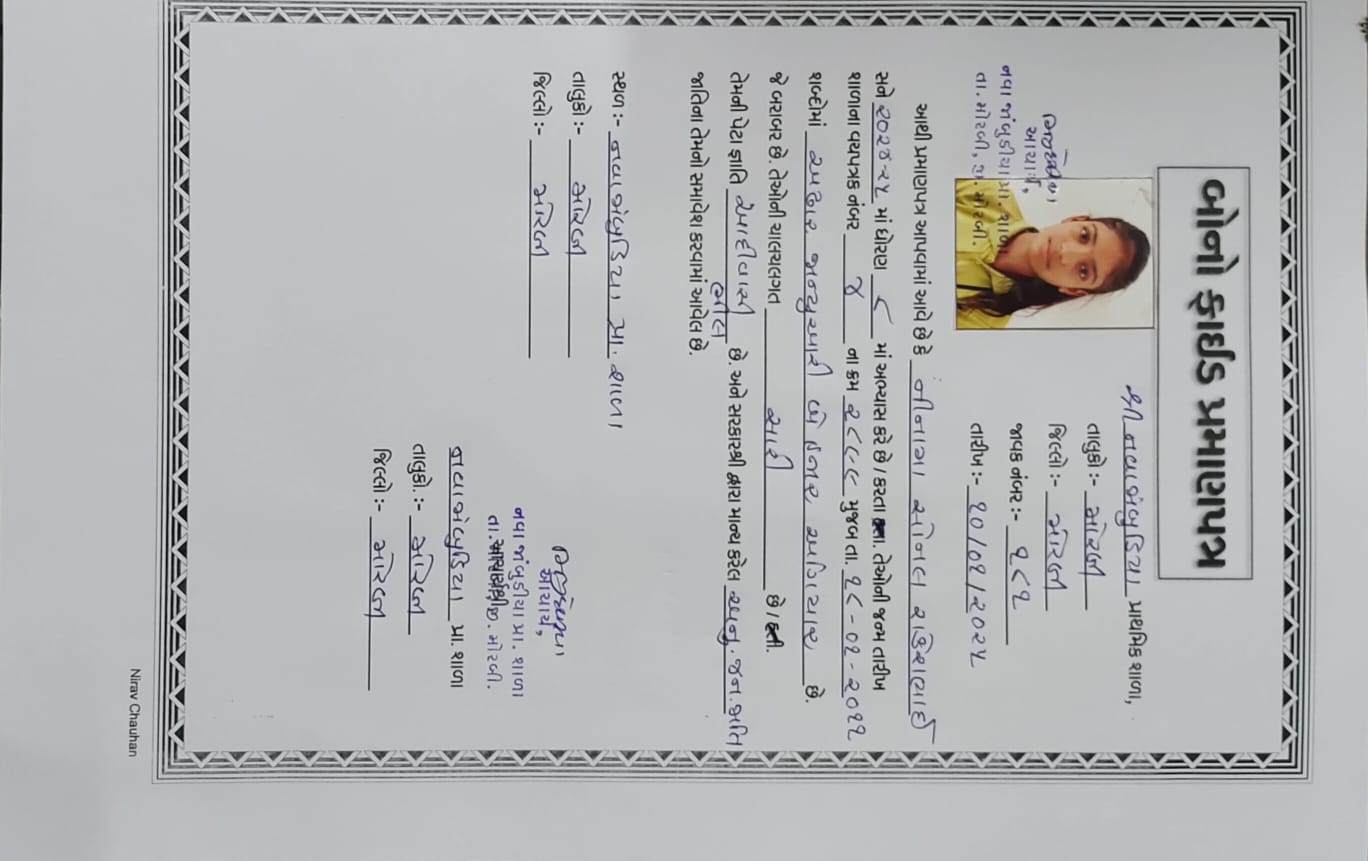 બોનો ફાઈડ પ્રમાણપત્ર
શ્રી નવાજાંબુડિયા પ્રાથમિક શાળા,
તાલુકો :- મોરબી
જિલ્લો :- મોરબી
જાવક નંબર :- ૧૮૧
તારીખ :- ૧૦/૦૧/૨૦૨૫
આચાર્ય,
નવા જાંબુડીયા પ્રા. શાળા
તા. મોરબી, જી. મોરબી.
આથી પ્રમાણપત્ર આપવામાં આવે છે કે નીનામા સોનલ
સને ૨૦૨૪-૨૫ માં ધોરણ ૮ માં અભ્યાસ કરે છે / કરતા તેઓની જન્મ તારીખ
શાળાના વયપત્રક નંબર ૪ ના ક્રમ ૨૮૮૮ મુજબ તા. ૧૮-૦૧-૨૦૧૧
શબ્દોમાં અઢાર જાન્યુઆરી બે હજાર અગિયાર છે.
જે બરાબર છે. તેઓની ચાલચલગત સારી છે /
તેમની પેટા જ્ઞાતિ આદીવાસી ભીલ છે. અને સરકારશ્રી દ્વારા માન્ય કરેલ અનુ. જન. જાતિ
જાતિના તેમનો સમાવેશ કરવામાં આવેલ છે.
સ્થળ :- નવાજાંબુડિયા પ્રા. શાળા
તાલુકો :- મોરબી
જિલ્લો :- મોરબી
આચાર્ય,
નવા જાંબુડીયા પ્રા. શાળા
તા. મોરબી, જી. મોરબી.
નવાજાંબુડિયા પ્રા. શાળા
તાલુકો. :- મોરબી
જિલ્લો :- મોરબી
Nirav Chauhan